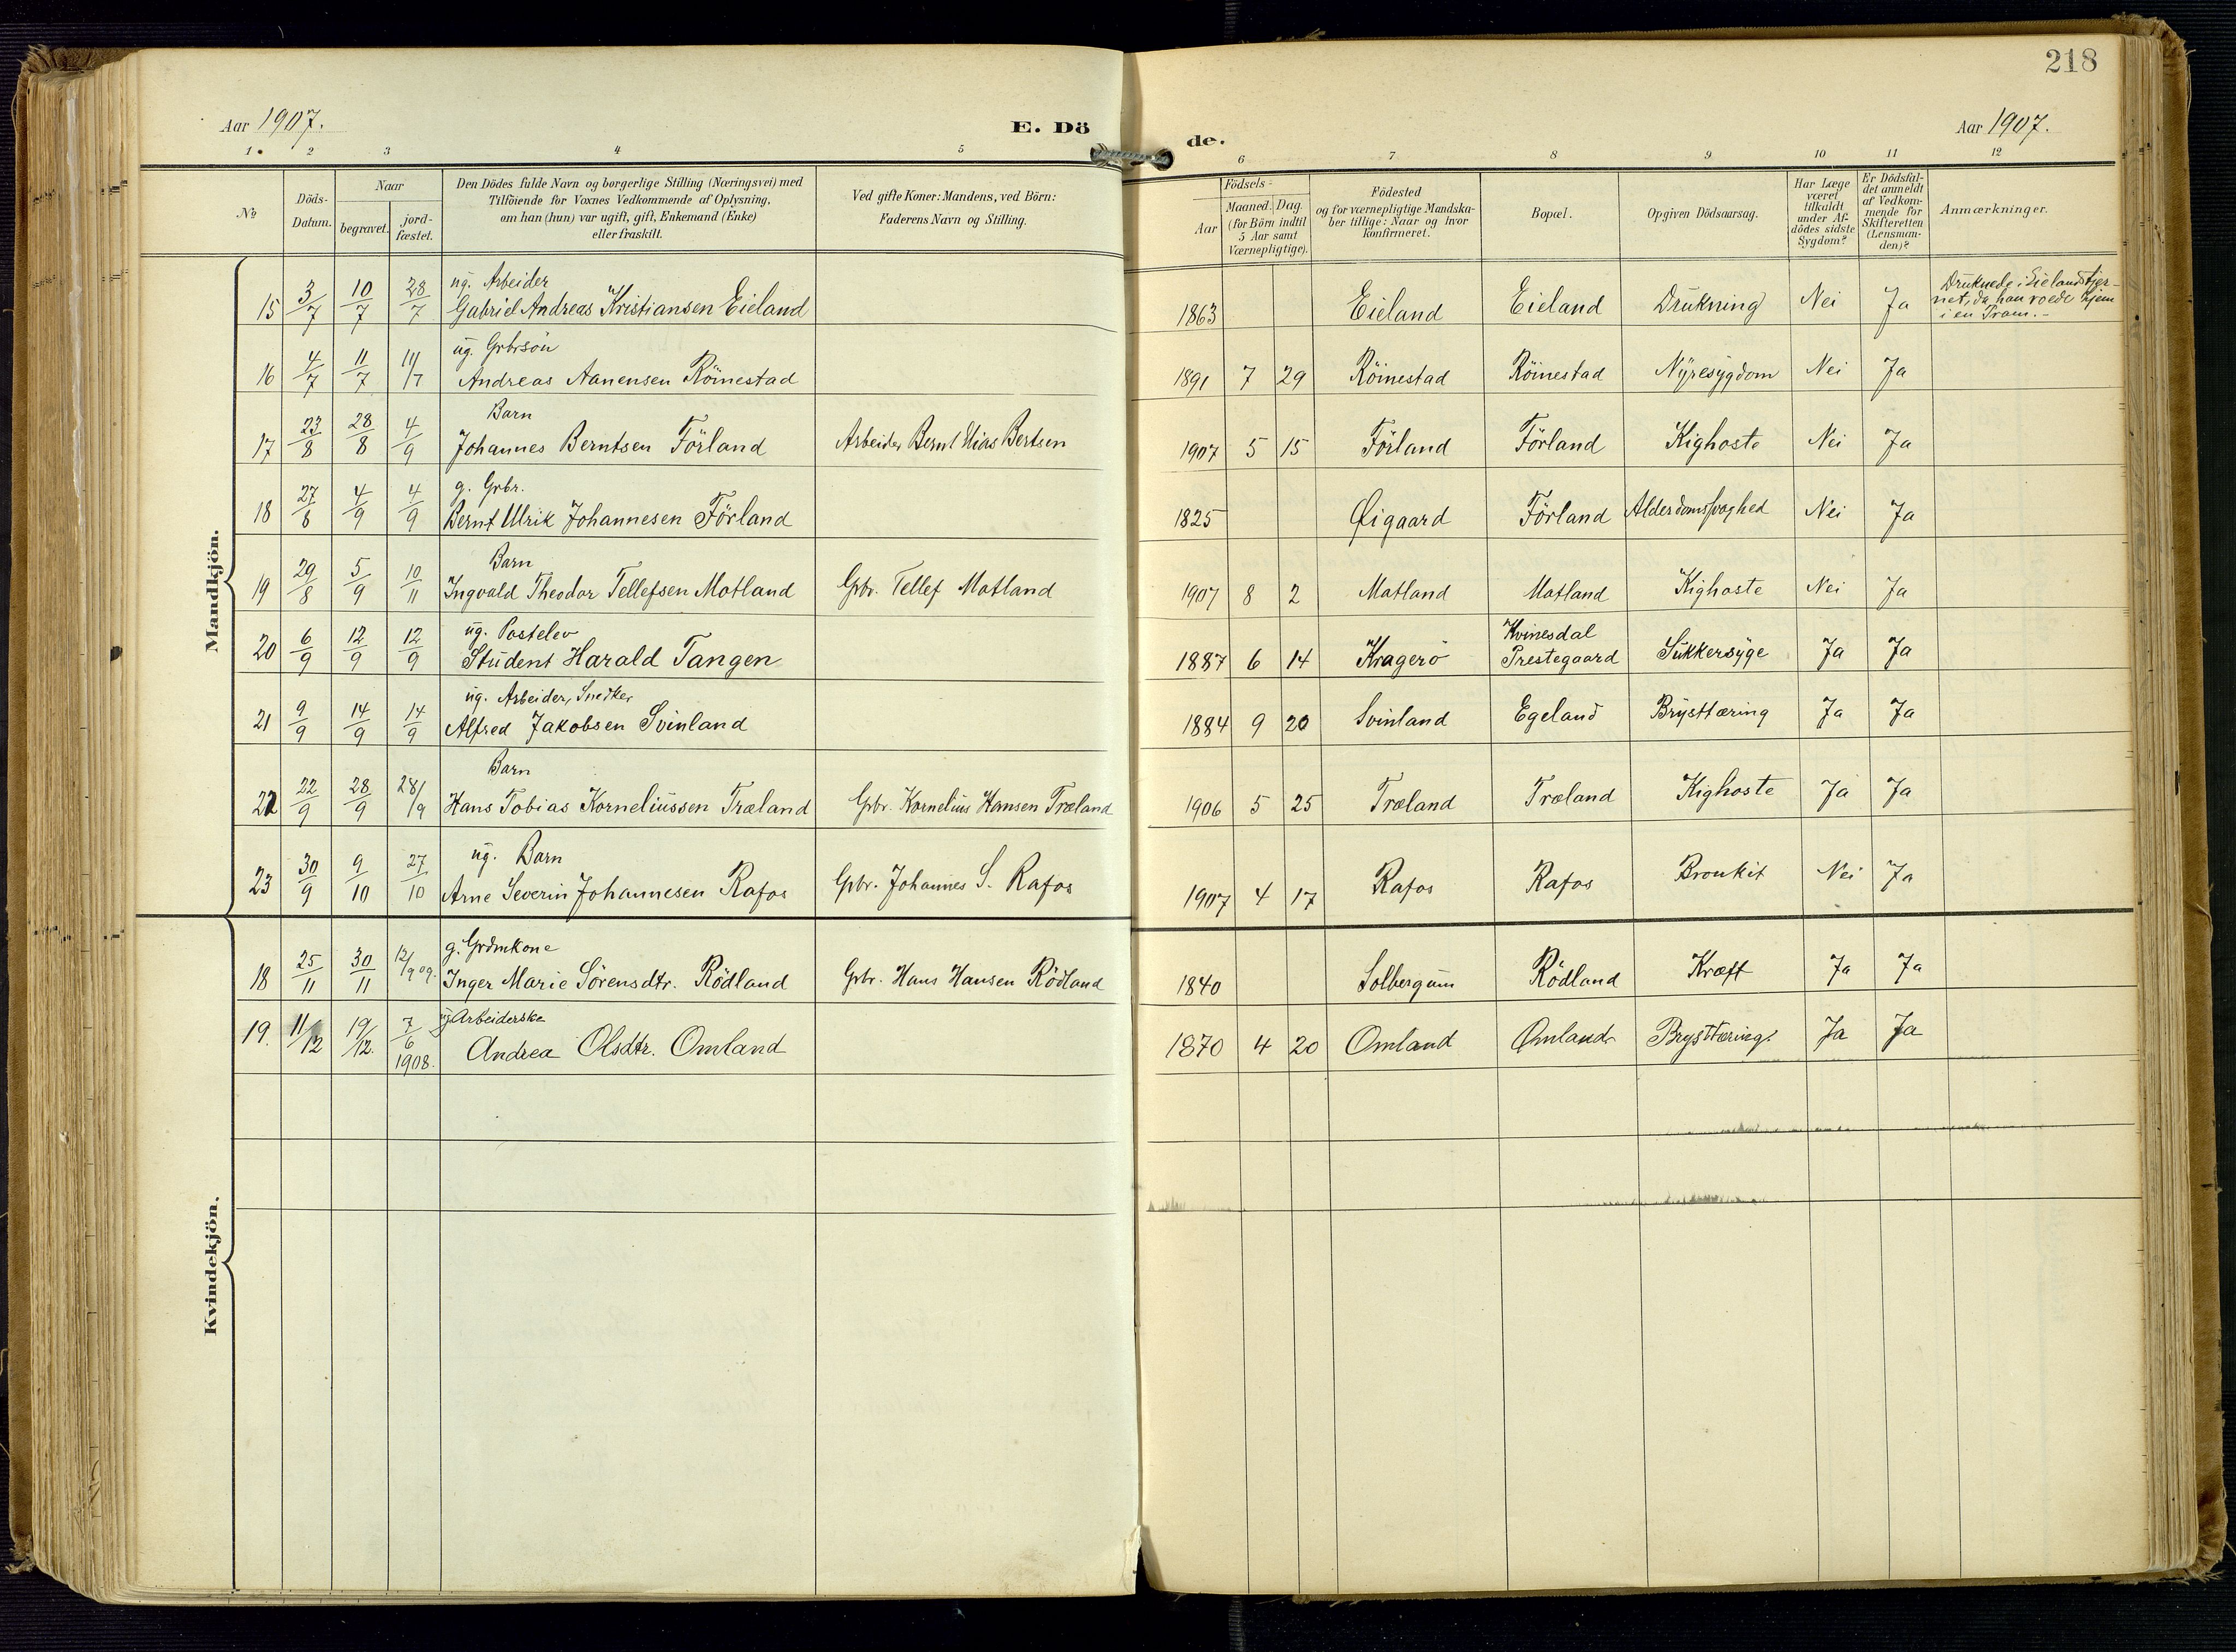 218
Aar 1907.
E. Dö
de.
Aar 1907.
1 2 3 4 5 6 7 8 9 10 11 12
No
Döds-
Datum.
Naar
begravet.
jord-
fæstet.
Den Dödes fulde Navn og borgerlige Stilling (Næringsvei) med
Tilföiende for Voxnes Vedkommende af Oplysning,
om han (hun) var ugift, gift, Enkemand (Enke)
eller fraskilt.
Ved gifte Koner: Mandens, ved Börn:
Faderens Navn og Stilling.
Födsels-
Aar
Maaned. Dag.
(for Börn indtil
5 Aar samt
Værnepligtige).
Födested
og for værnepligtige Mandska-
ber tillige: Naar og hvor
konfirmeret.
Bopæl.
Opgiven Dödsaarsag.
Har Læge
været
tilkaldt
under Af-
dödes sidste
Sygdom?
Er Dödsfal-
det anmeldt
af Vedkom-
mende for
Skifteretten
(Lensman-
den)?
Anmærkninger.
Mandkjön.
ug. Arbeider
15 3/7 10/7 28/7 Gabriel Andreas Kristiansen Eieland 1863 Eieland Eieland Drukning Nei Ja
Druknede i Eielandstjer-
net, da han roede hjem
i en Pram.-
ug. Grbrsön
16 4/7 11/7 11/7 Andreas Aanensen Röinestad 1891 7 29 Röinestad Röinestad Nyresygdom Nei Ja
Barn
17 23/8 28/8 4/9 Johannes Berntsen Förland Arbeider Bernt Elias Bertsen 1907 5 15 Förland Förland Kighoste Nei Ja
g. Grbr.
18 27/8 4/9 4/9 Bernt Ulrik Johannesen Förland 1825 Øigaard Förland Alderdomssvaghed Nei Ja
Barn
19 29/8 5/9 10/11 Ingvald Theodor Tellefsen Motland Gbr. Tellef Motland 1907 8 2 Motland Motland Kighoste Nei Ja
ug. Postelev
20 6/9 12/9 12/9 Student Harald Tangen 1887 6 14 Kragerö Kvinesdal
Prestegaard Sukkersyge Ja Ja
ug. Arbeider, Snedker
21 9/9 14/9 14/9 Alfred Jakobsen Svinland 1884 9 20 Svinland Egeland Brysttæring Ja Ja
Barn
22 22/9 28/9 28/9 Hans Tobias Korneliussen Træland Gbr. Kornelius Hansen Træland 1906 5 25 Træland Træland Kighoste Ja Ja
ug. Barn
23 30/9 9/10 27/10 Arne Severin Johannesen Rafos Gbr. Johannes S. Rafos 1907 4 17 Rafos Rafos Bronkit Nei Ja
Kvindekjön.
g. Grdmkone
18 25/11 30/11 12/9 09. Inger Marie Sörensdtr. Rödland Gbr. Hans Hansen Rödland 1840 Solbergum Rödland Kræft Ja Ja
ug Arbeiderske
19. 11/12 19/12. 7/6 1908. Andrea Olsdtr. Omland 1870 4 20 Omland Omland Brysttæring. Ja Ja